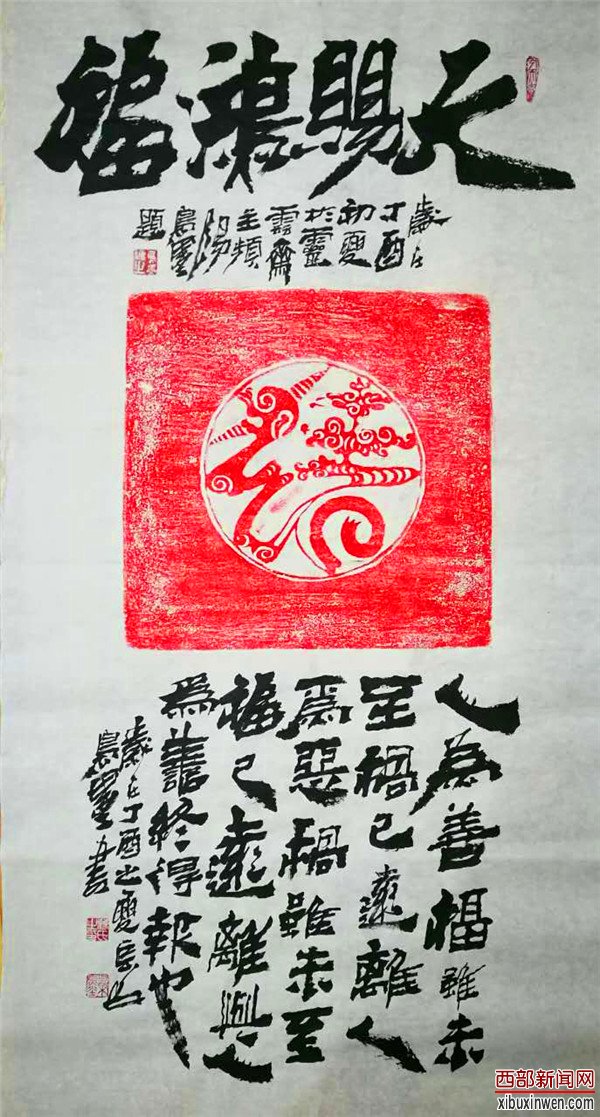 天賜鴻福
歲在
丁酉
初夏
於靈
雲齋
主頻
陽
墨
題
人為善福雖未
至禍已遠離人
爲惡禍雖未至
福已遠離與人
爲善終得報也
歲在丁酉之夏
墨書
西部新闻网
xibuxinwen.com